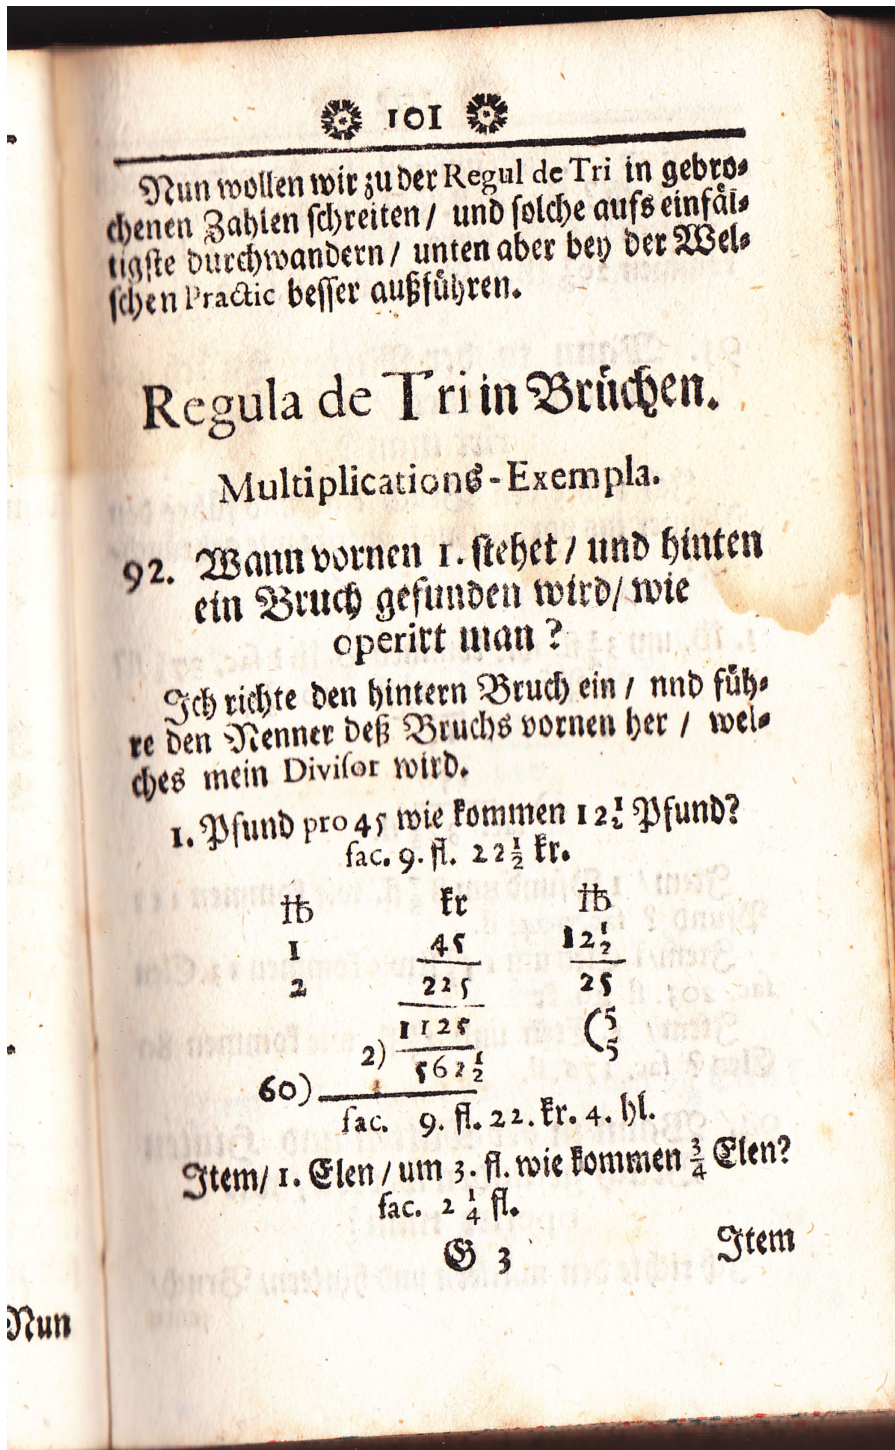 101
Nun wollen wir zu der Regul de Tri in gebro⸗
chenen Zahlen ſchreiten / und ſolche aufs einfäl⸗
tigſte durchwandern / unten aber bey der Wel⸗
ſchen Practic beſſer außführen.
Regula de Tri in Brüchen.
Multiplications-Exempla.
92. Wann vornen 1. ſtehet / und hinten
ein Bruch gefunden wird / wie
operirt man ?
Ich richte den hintern Bruch ein / nnd füh⸗
re den Nenner deß Bruchs vornen her / wel⸗
ches mein Diviſor wird.
1. Pfund pro 45 wie kommen 12½ Pfund?
fac. 9. fl. 22½ kr.
℔ kr ℔
1 45 12½
2 225 25
1125 (5
2) 562½ 5
60)
fac. 9. fl. 22. kr. 4. hl.
Item / 1. Elen / um 3. fl. wie kommen ¾ Elen?
fac. 2 ¼ fl.
G 3 Item
Nun